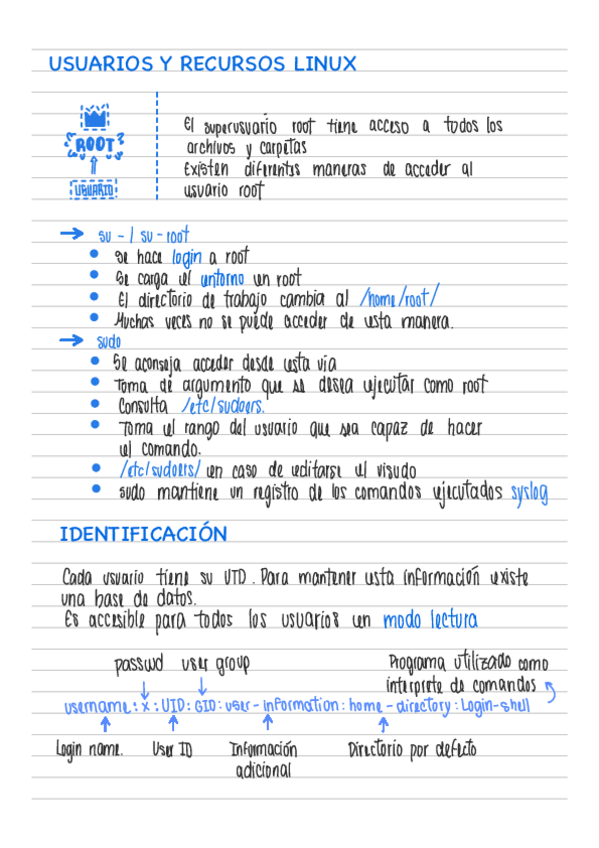 USUARIOS Y RECURSOS LINUX
ROOT
USUARIO
El superusuario root tiene acceso a todos los
archivos y carpetas
Existen diferentes maneras de acceder al
usuario root
→ su - / su - root
• Se hace login a root
• Se carga el entorno en root
• El directorio de trabajo cambia al /home/root/
• Muchas veces no se puede acceder de esta manera.
→ sudo
• Se aconseja acceder desde esta vía
• Toma de argumento que se desea ejecutar como root
• Consulta /etc/sudoers.
• Toma el rango del usuario que sea capaz de hacer
el comando.
• /etc/sudoers/ en caso de editarse el visudo
• sudo mantiene un registro de los comandos ejecutados syslog
IDENTIFICACIÓN
Cada usuario tiene su UID. Para mantener esta información existe
una base de datos.
Es accesible para todos los usuarios en modo lectura
passwd user group
Programa utilizado como
interprete de comandos
username : x : UID : GID : user - information : home - directory : Login - shell
Login name. User ID Información Directorio por defecto
adicional